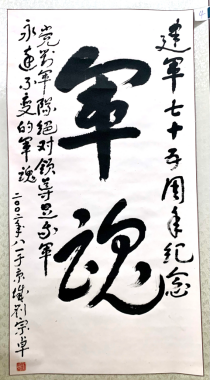 建军七十五周年纪念
军魂
党对军队绝对领导是我军
永远不变的军魂
二〇〇二年八一于京城刘宗卓